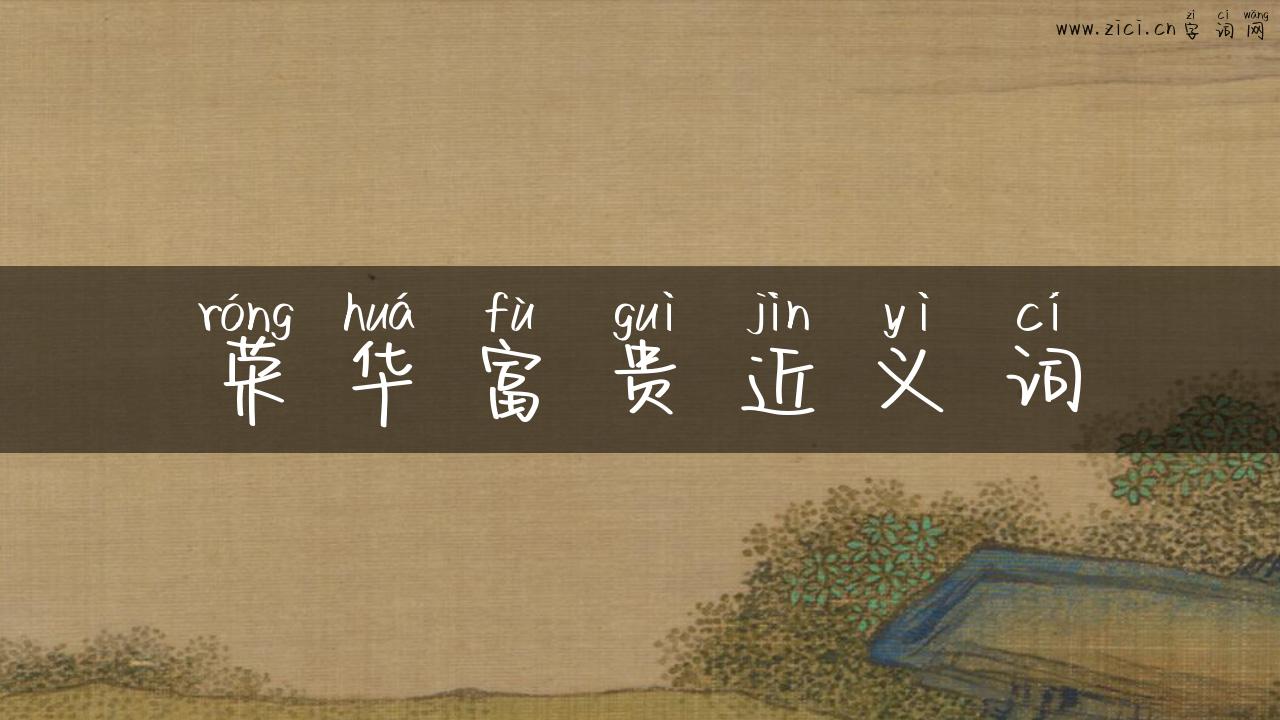 zì cí wǎng
www.zici.cn 字词网
róng huá fù guì jìn yì cí
荣华富贵近义词